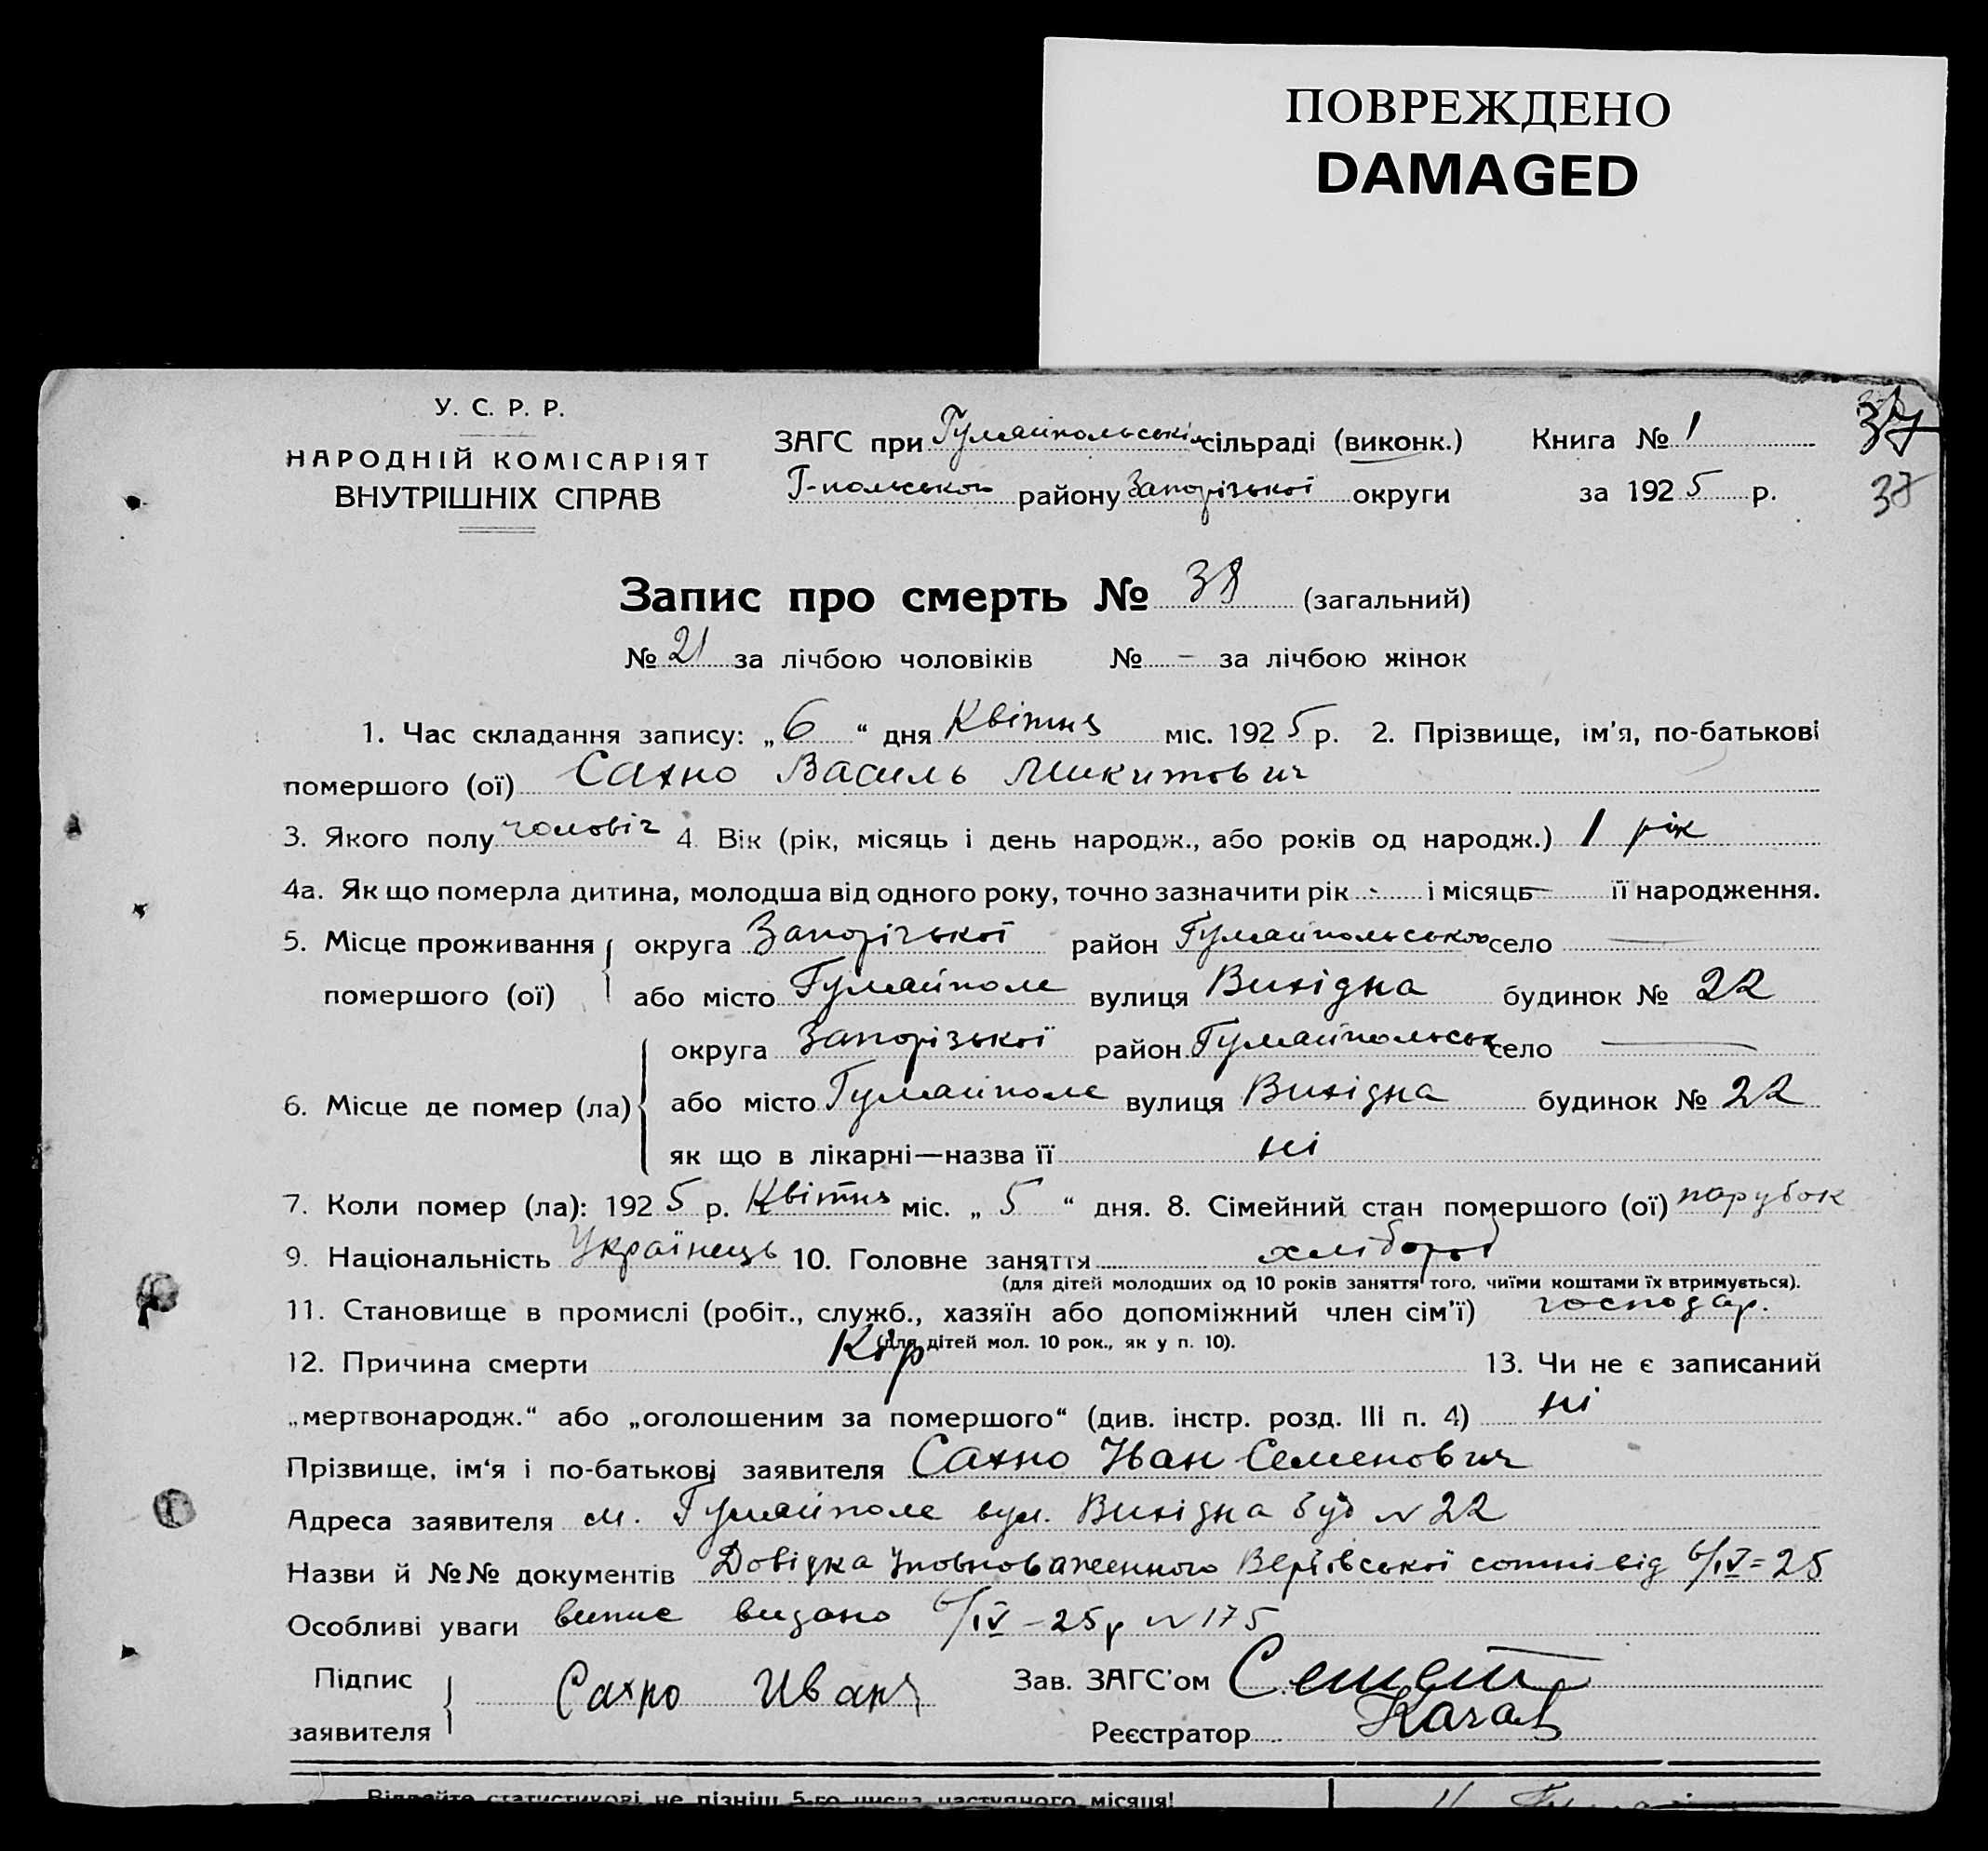 ПОВРЕЖДЕНО
DAMAGED
У. С. Р. Р.
НАРОДНІЙ КОМІСАРІЯТ
ВНУТРІШНІХ СПРАВ
ЗАГС при Гуляйпольській сільраді (виконк.) Книга № 1
Г-польського району Запорізької округи за 1925 р.
37
38
Запис про смерть № 38 (загальний)
№ 21 за лічбою чоловіків № – за лічбою жінок
1. Час складання запису: „6“ дня Квітня міс. 1925 р. 2. Прізвище, ім'я, по-батькові
помершого (ої) Сахно Василь Микитович
3. Якого полу чоловіч 4. Вік (рік, місяць і день народж., або років од народж.) 1 рік
4а. Як що померла дитина, молодша від одного року, точно зазначити рік - і місяць — її народження.
5. Місце проживання округа Запорізької район Гуляйпольського село —
помершого (ої) або місто Гуляйполе вулиця Вихідна будинок № 22
округа Запорізької район Гуляйпольськ село —
6. Місце де помер (ла) або місто Гуляйполе вулиця Вихідна будинок № 22
як що в лікарні—назва її ні
7. Коли помер (ла): 1925 р. Квітня міс. „5“ дня. 8. Сімейний стан помершого (ої) парубок
9. Національність Українець 10. Головне заняття хлібороб
(для дітей молодших од 10 років заняття того, чиїми коштами їх втримується).
11. Становище в промислі (робіт., служб., хазяїн або допоміжний член сім'ї) господар.
(для дітей мол. 10 рок., як у п. 10).
12. Причина смерти Кір 13. Чи не є записаний
„мертвонародж.“ або „оголошеним за помершого“ (див. інстр. розд. III п. 4) ні
Прізвище, ім'я і по-батькові заявителя Сахно Іван Семенович
Адреса заявителя м. Гуляйполе вул. Вихідна буд № 22
Назви й №№ документів Довідка Уповноваженного Вербівської сотні від 6/IV=25
Особливі уваги випис видано 6/IV–25р № 175
Підпис Сахно Иван Зав. ЗАГС'ом
заявителя Реєстратор
Віддайте статистикові не пізніш 5-го числа наступного місяця!